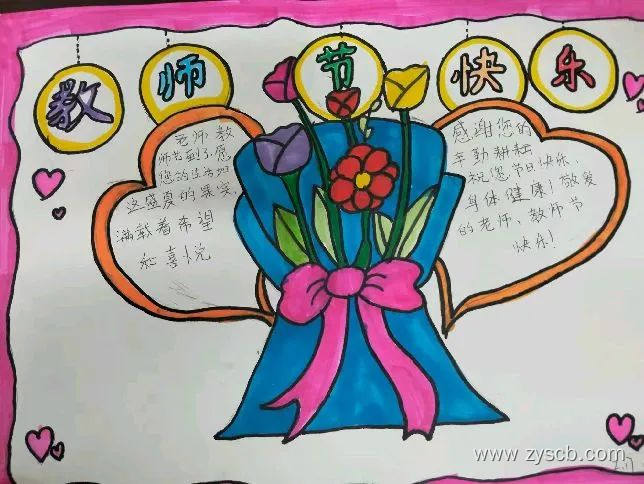 教师节快乐
老师教
师节到了,您
您的生活如
这盛夏的果实,
满载着希望
和喜悦
感谢您的
辛勤耕耘
祝您节日快乐,
身体健康!敬爱
的老师,教师节
快乐!
www.zyscb.com